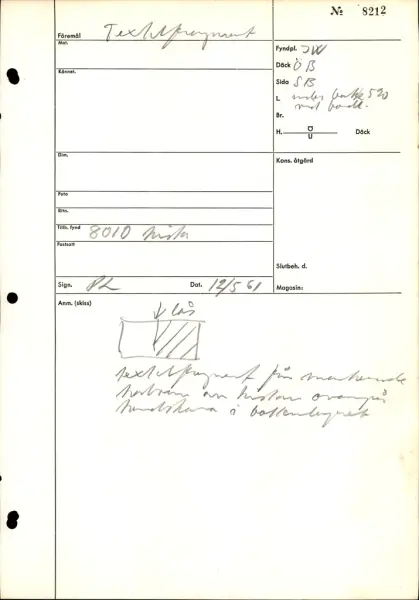 No 8212
Föremål Textilfragment
Mat.
Fyndpl. JW
Däck ÖB
Sida SB
Kännet.
L. under balk 5
mot bordl.
Br.
H. Ö/U Däck
Dim.
Kons. åtgärd
Foto
Ritn.
Tillh. fynd 8010 kista
Fortsatt
Slutbeh. d.
Sign. PL Dat. 12/5 61
Magasin:
Anm. (skiss)
lås
textilfragment från
av kistan ovanpå
i bottenlagret